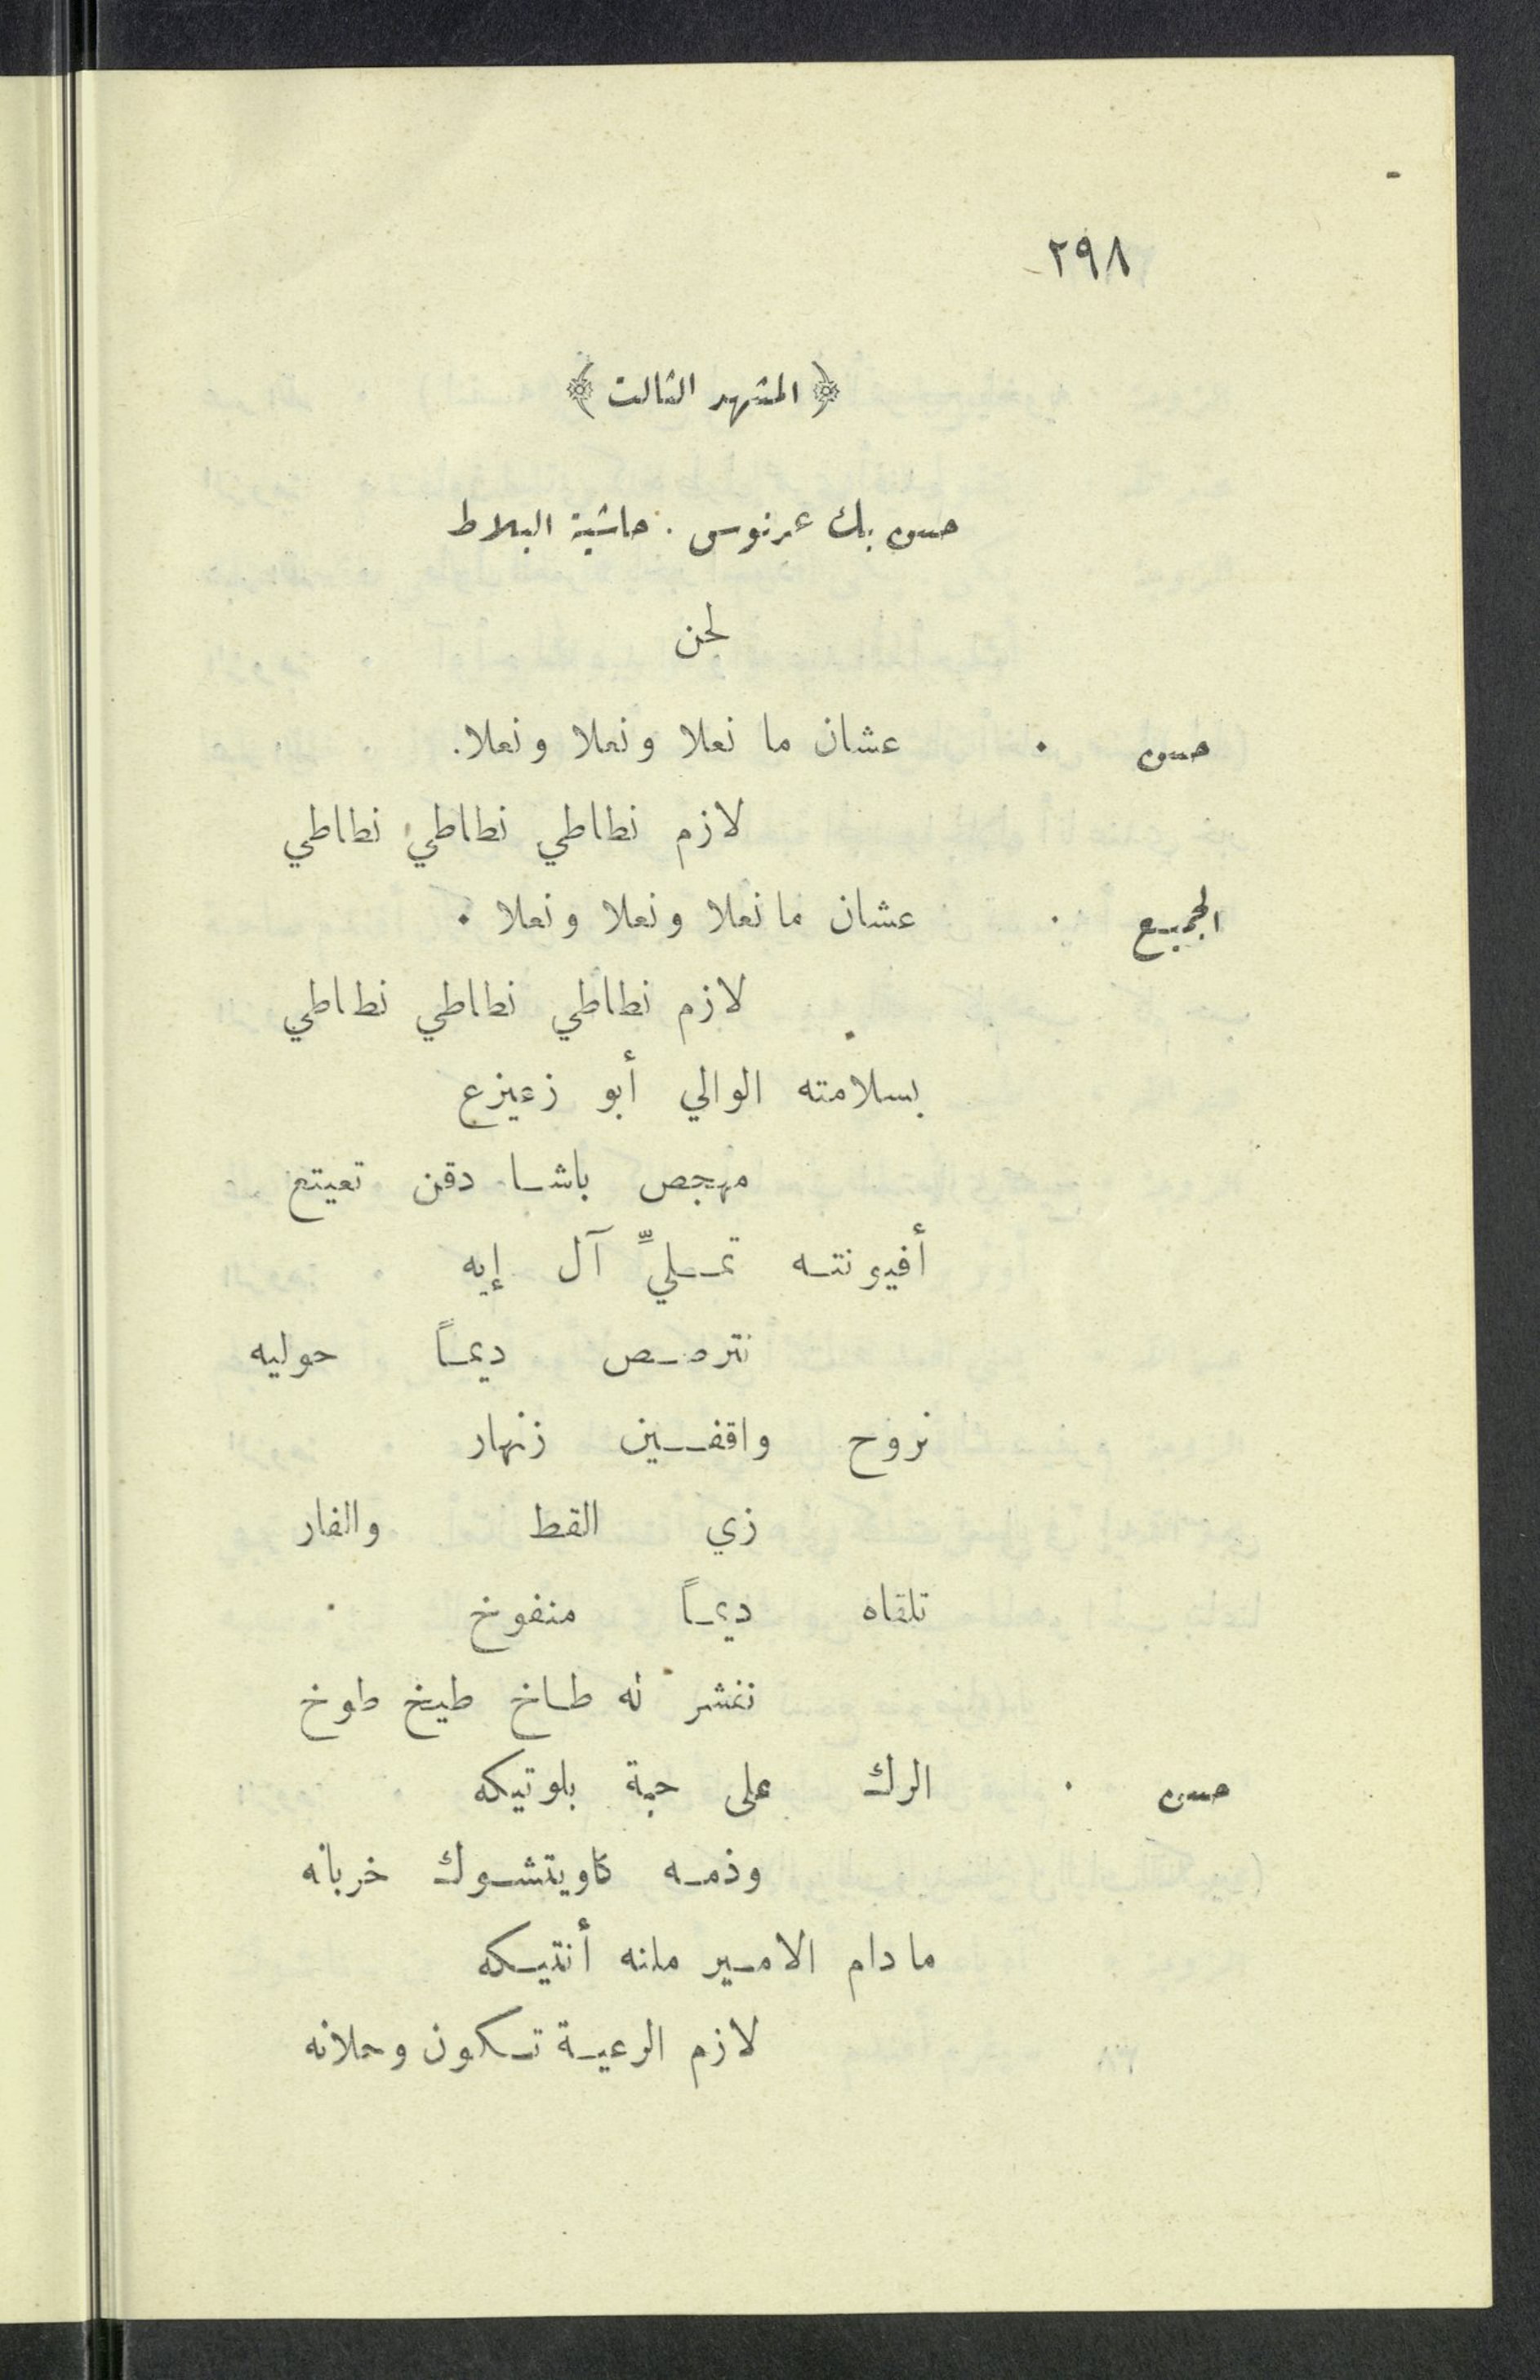 ٢٩٨
﴿ المشهد الثالث ﴾
حسن بك عرنوس . حاشية البلاط
لحن
حسن . عشان ما نعلا ونعلا ونعلا.
لازم نطاطي نطاطي نطاطي
الجميع . عشان ما نعلا ونعلا ونعلا .
لازم نطاطي نطاطي نطاطي
بسلامته الوالي أبو زعيزع
مهجص باشا دقن تعيتع
أفيونته تملليِّ آل إيه
نترصص ديماً حوليه
نروح واقفين زنهار
زي القط والفار
تلقاه ديماً منفوخ .
ننفشر له طاخ طيخ طوخ
حسن . الرك على حبة بلوتيكه
وذمه كاويتشوك خربانه
ما دام الامير مانه أنتيكه
لازم الرعية تكون وحلانه